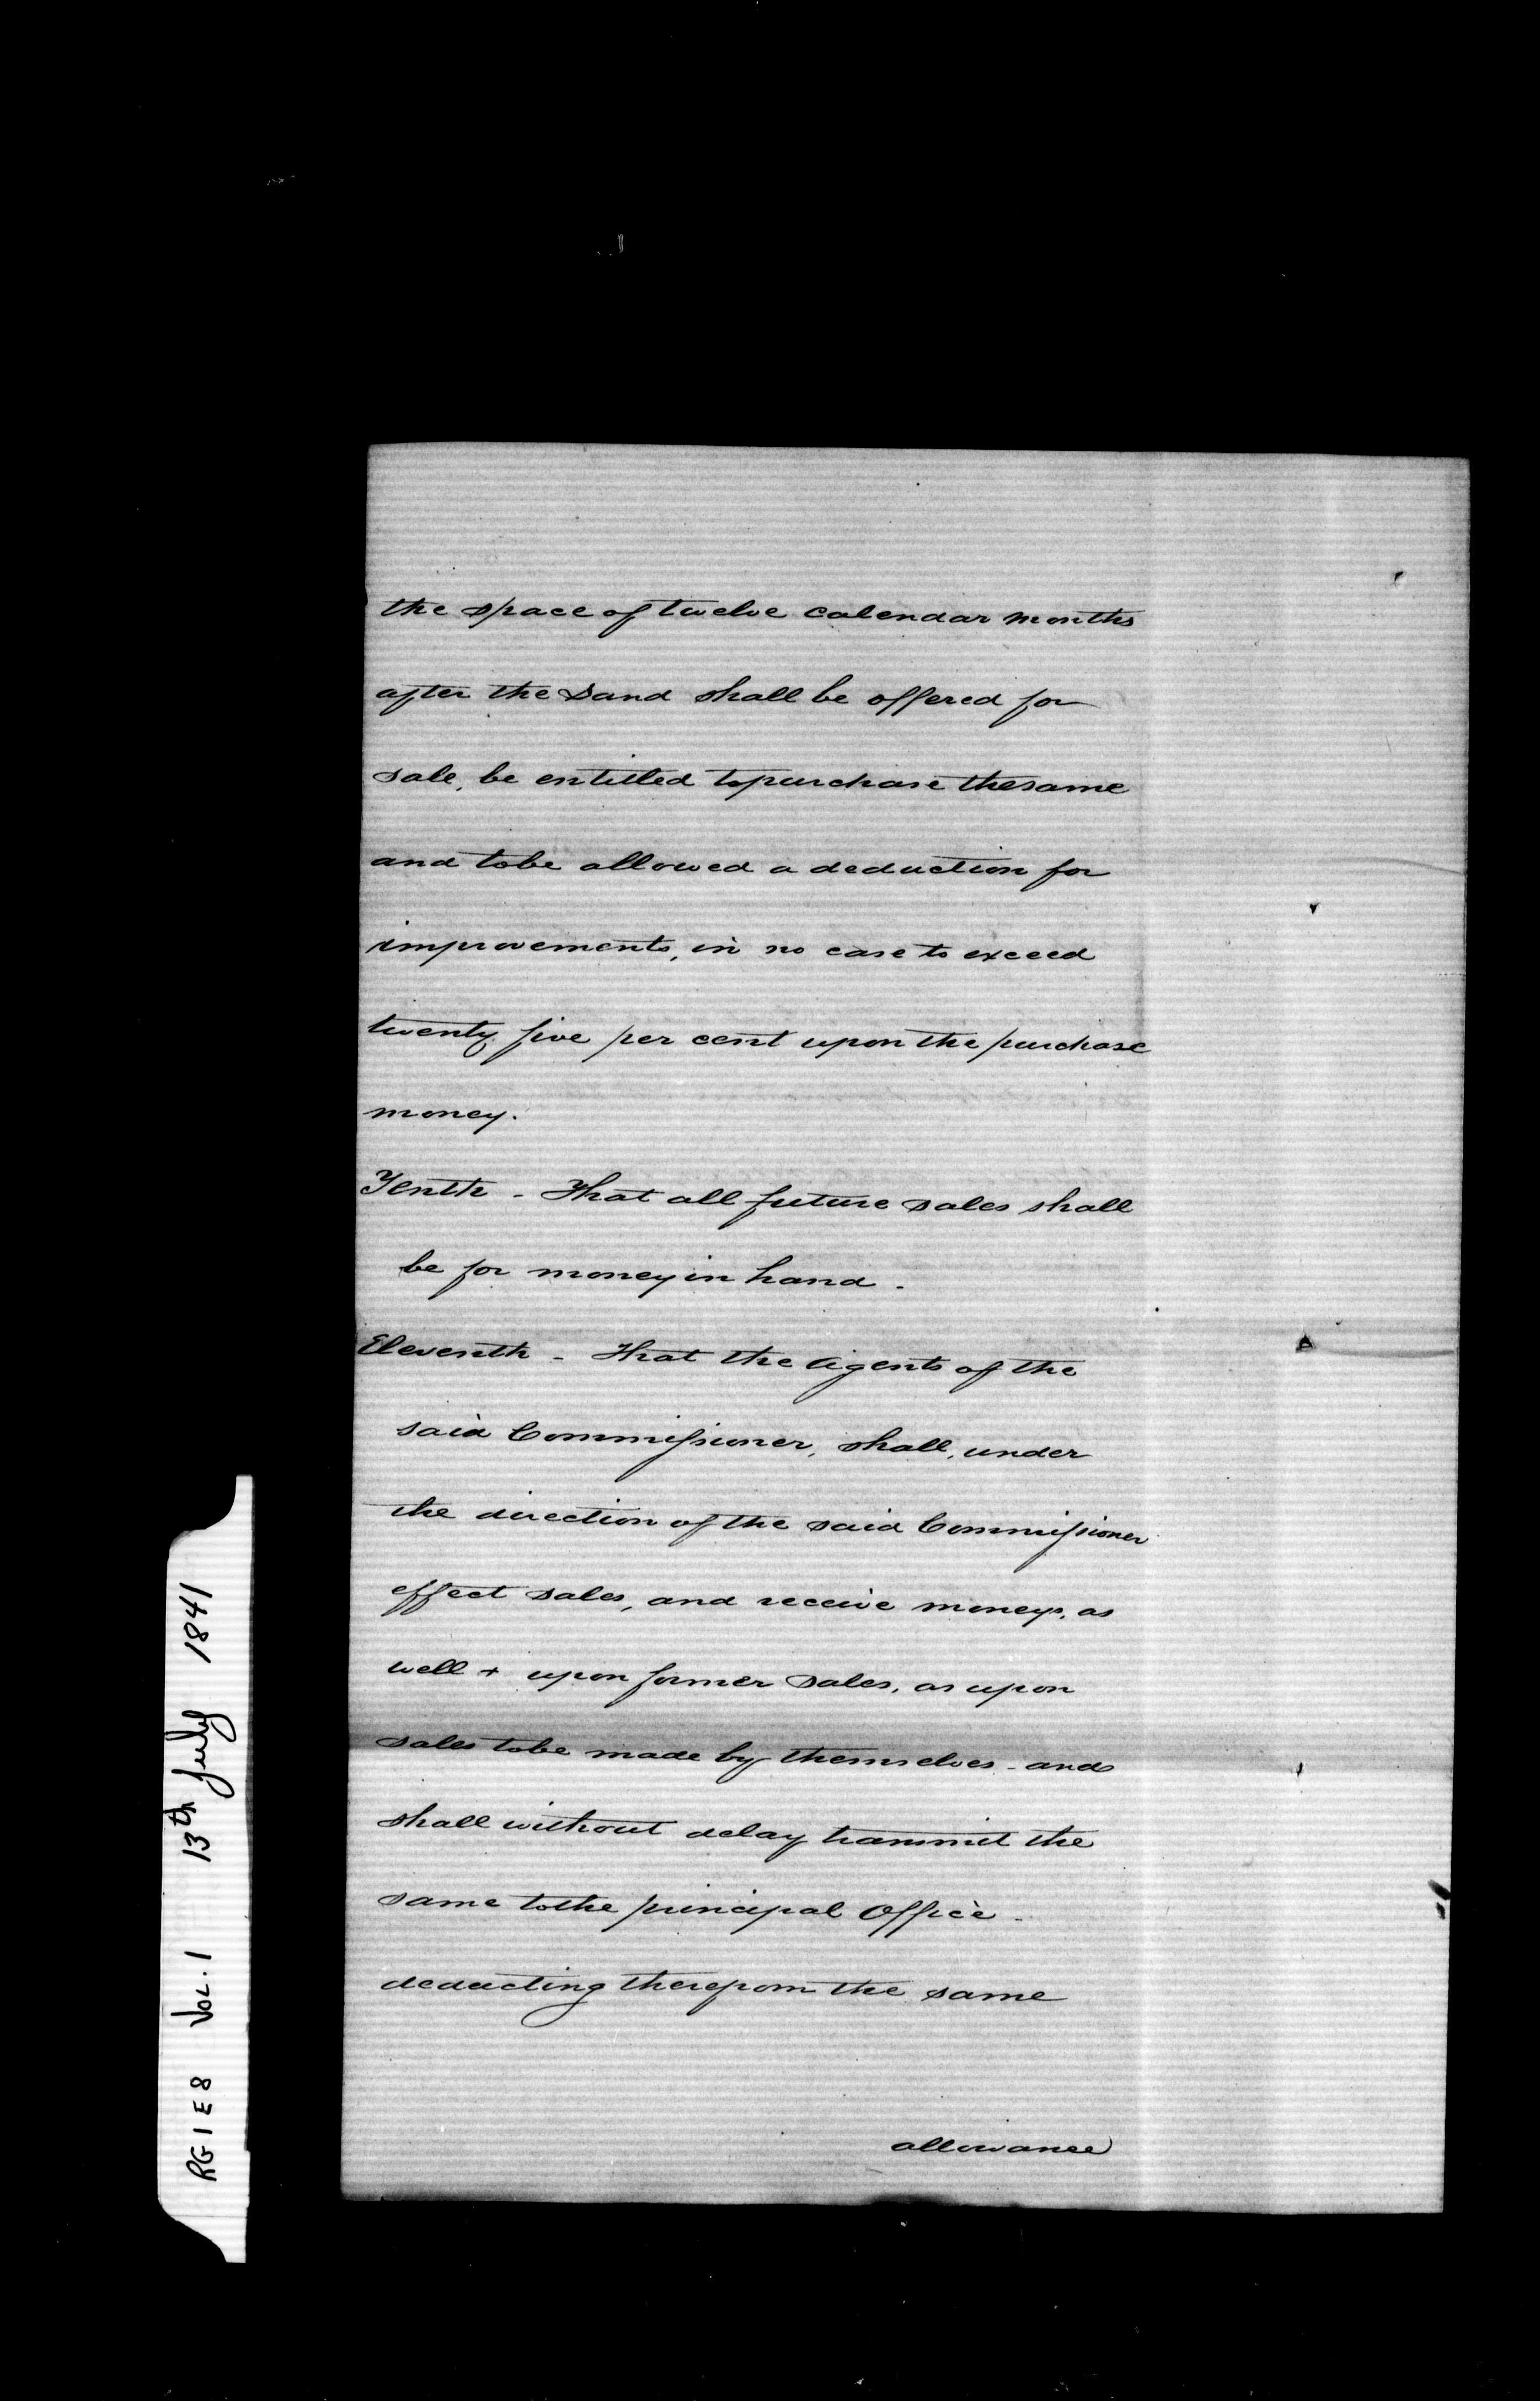 the space of twelve calendar months
after the Land shall be offered for
sale, be entitled to purchase the same
and to be allowed a deduction for
improvements, in no case to exceed
twenty five per cent upon the purchase
money.
Tenth - That all future sales shall
be for money in hand -
Eleventh - That the Agents of the
said Commissioner, shall, under
the direction of the said Commissioner
effect sales, and receive moneys, as
well + upon former sales, as upon
sales to be made by themselves - and
shall without delay transmit the
same to the principal Office -
deducting therefrom the same
allowance
RG1E8 VOL.1 13th July 1841